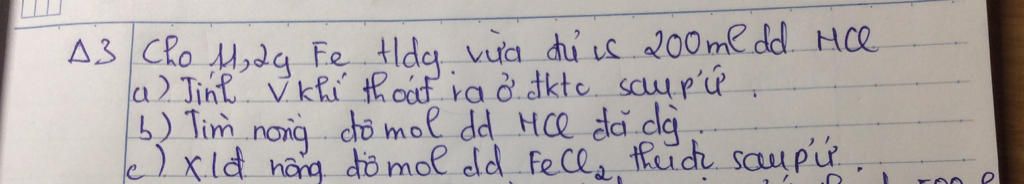 Δ3 Cho 11,2g Fe t/dg vừa đủ vs 200ml dd HCl
a) Tính V khí thoát ra ở đktc sau p'ứ.
b) Tìm nồng độ mol dd HCl đã dg.
c) X/đ nồng độ mol dd FeCl₂ thu đc sau p'ứ.